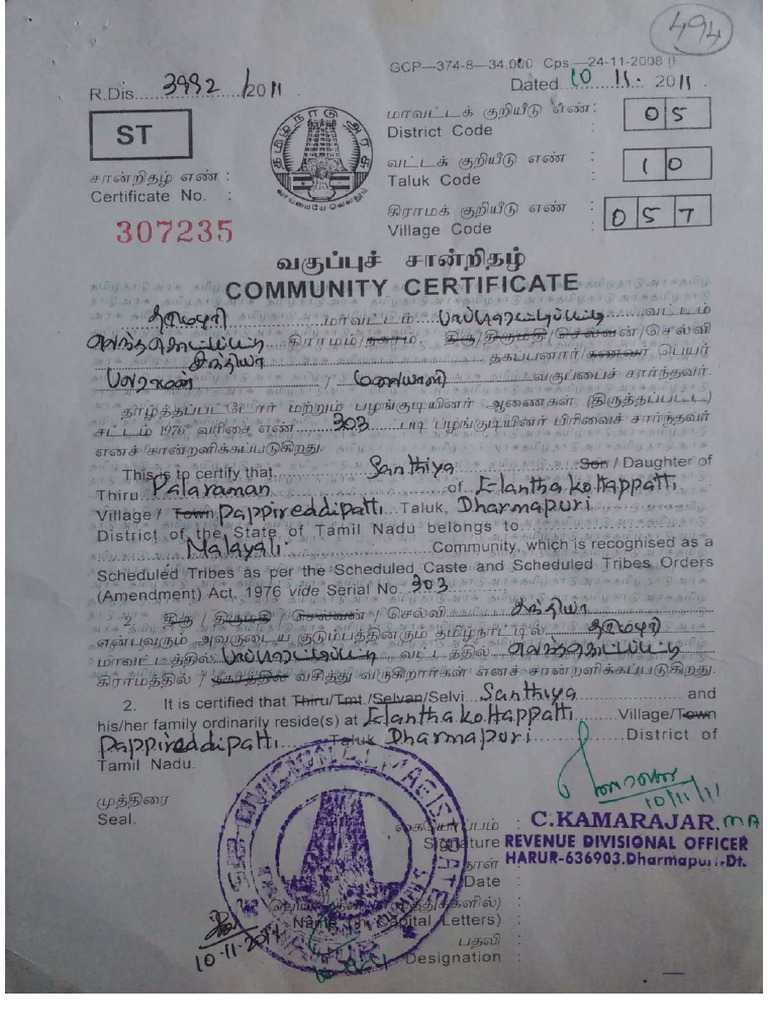 494
GCP—374-8—34,000 Cps —24-11-2008
R.Dis 3992 /2011
Dated 10 11. 2011
ST
தமிழ்நாடு அரசு
வாய்மையே வெல்லும்
மாவட்டக் குறியீடு எண் :
District Code : 05
வட்டக் குறியீடு எண் :
Taluk Code : 10
கிராமக் குறியீடு எண் :
Village Code : 057
சான்றிதழ் எண் :
Certificate No. :
307235
வகுப்புச் சான்றிதழ்
COMMUNITY CERTIFICATE
தருமபுரி மாவட்டம் பாப்பிரெட்டிப்பட்டி வட்டம்
எலந்தகொட்டப்பட்டி கிராமம்/நகரம், திரு/திருமதி/செல்வன்/செல்வி
சந்தியா தகப்பனார்/கணவர் பெயர்
பலராமன் / மலையாளி வகுப்பைச் சார்ந்தவர்.
தாழ்த்தப்பட்டோர் மற்றும் பழங்குடியினர் ஆணைகள் (திருத்தப்பட்ட)
சட்டம் 1976 வரிசை எண் 303 படி பழங்குடியினர் பிரிவைச் சார்ந்தவர்
எனச் சான்றளிக்கப்படுகிறது.
This is to certify that Santhiya Son / Daughter of
Thiru Palaraman of Elanthakottappatti
Village / Town Pappireddipatti Taluk, Dharmapuri
District of the State of Tamil Nadu belongs to
Malayali Community, which is recognised as a
Scheduled Tribes as per the Scheduled Caste and Scheduled Tribes Orders
(Amendment) Act, 1976 vide Serial No. 303
2. திரு / திருமதி / செல்வன் / செல்வி சந்தியா
என்பவரும் அவருடைய குடும்பத்தினரும் தமிழ்நாட்டில் தருமபுரி
மாவட்டத்தில் பாப்பிரெட்டிப்பட்டி வட்டத்தில் எலந்தகொட்டப்பட்டி
கிராமத்தில் / நகரத்தில் வசித்து வருகிறார்கள் எனச் சான்றளிக்கப்படுகிறது.
2. It is certified that Thiru/Tmt./Selvan/Selvi Santhiya and
his/her family ordinarily reside(s) at Elanthakottappatti Village/Town
Pappireddipatti Taluk Dharmapuri District of
Tamil Nadu.
10/11/11
முத்திரை
Seal.
SUB DIVISIONAL MAGISTRATE
HARUR
C.KAMARAJAR. MA
REVENUE DIVISIONAL OFFICER
HARUR-636903.Dharmapuri-Dt.
கையொப்பம் :
Signature
நாள்
Date :
Name (in Capital Letters) :
10-11-2011
பதவி
Designation :